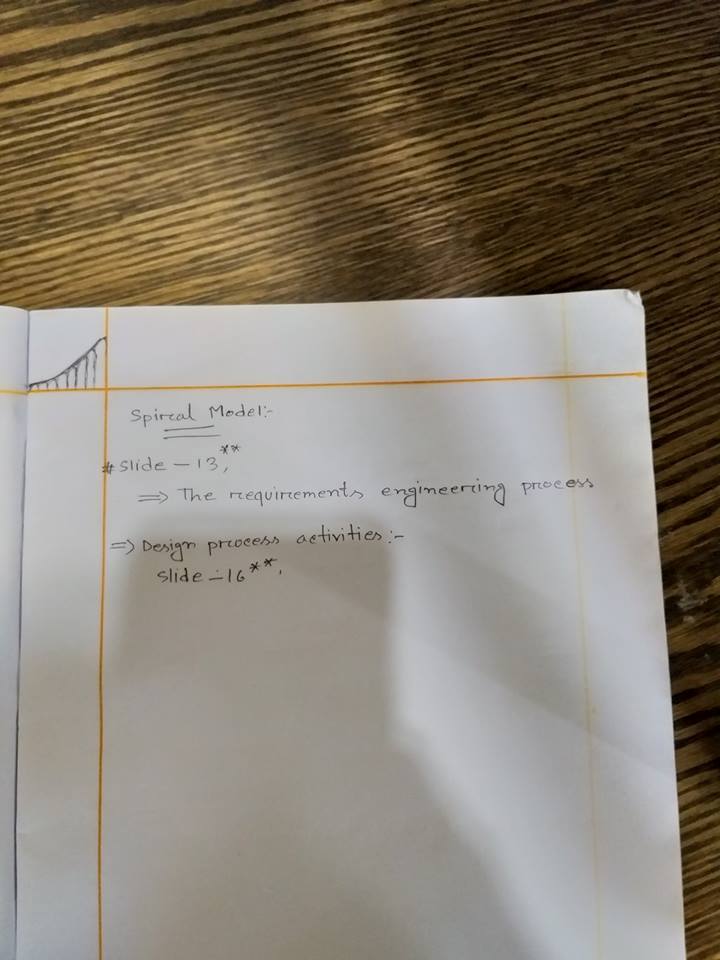 Spiral Model:-
# Slide - 13, **
⇒ The requirements engineering process
⇒ Design process activities:-
Slide - 16 **,